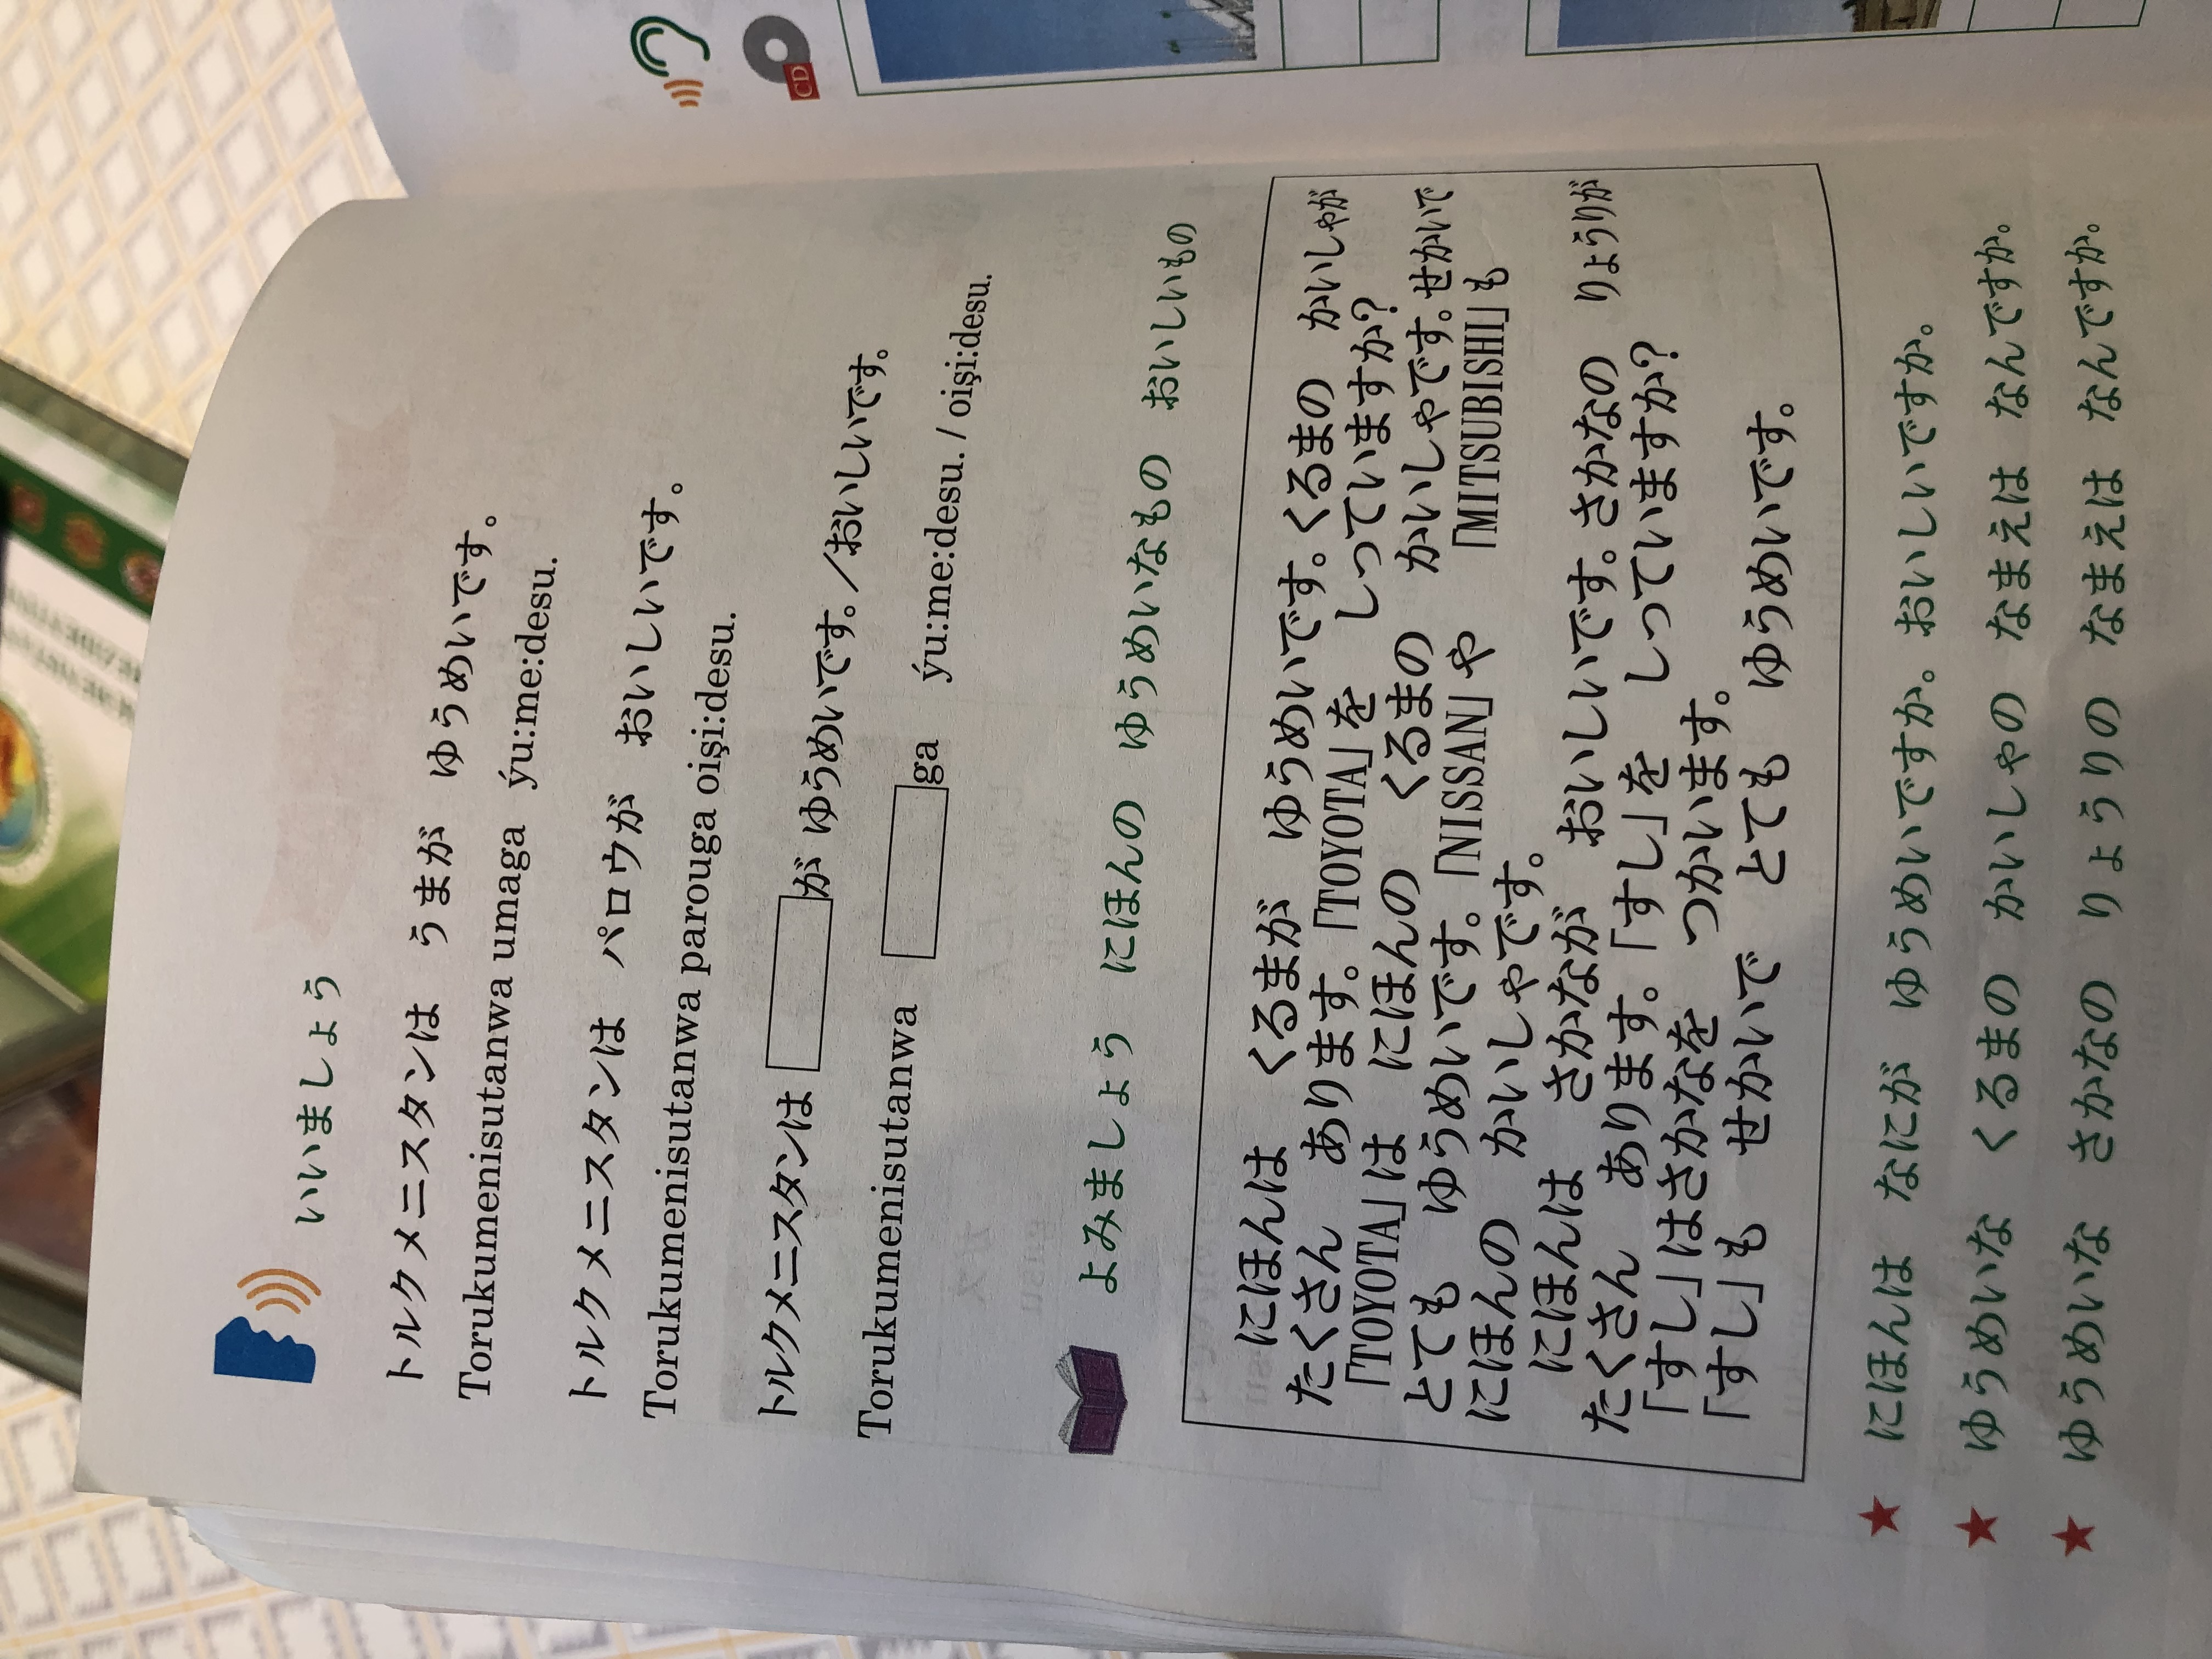 いいましょう
トルクメニスタンは うまが ゆうめいです。
Torukumenisutanwa umaga ýu:me:desu.
トルクメニスタンは パロウが おいしいです。
Torukumenisutanwa parouga oişi:desu.
トルクメニスタンは が ゆうめいです。/おいしいです。
Torukumenisutanwa ga ýu:me:desu. / oişi:desu.
よみましょう にほんの ゆうめいなもの おいしいもの
にほんは くるまが ゆうめいです。くるまの かいしゃが
たくさん あります。「TOYOTA」を しっていますか?
「TOYOTA」は にほんの くるまの かいしゃです。せかいで
とても ゆうめいです。「NISSAN」や 「MITSUBISHI」も
にほんの かいしゃです。
にほんは さかなが おいしいです。さかなの りょうりが
たくさん あります。「すし」を しっていますか?
「すし」はさかなを つかいます。
「すし」も せかいで とても ゆうめいです。
★ にほんは なにが ゆうめいですか。おいしいですか。
★ ゆうめいな くるまの かいしゃの なまえは なんですか。
★ ゆうめいな さかなの りょうりの なまえは なんですか。
CD